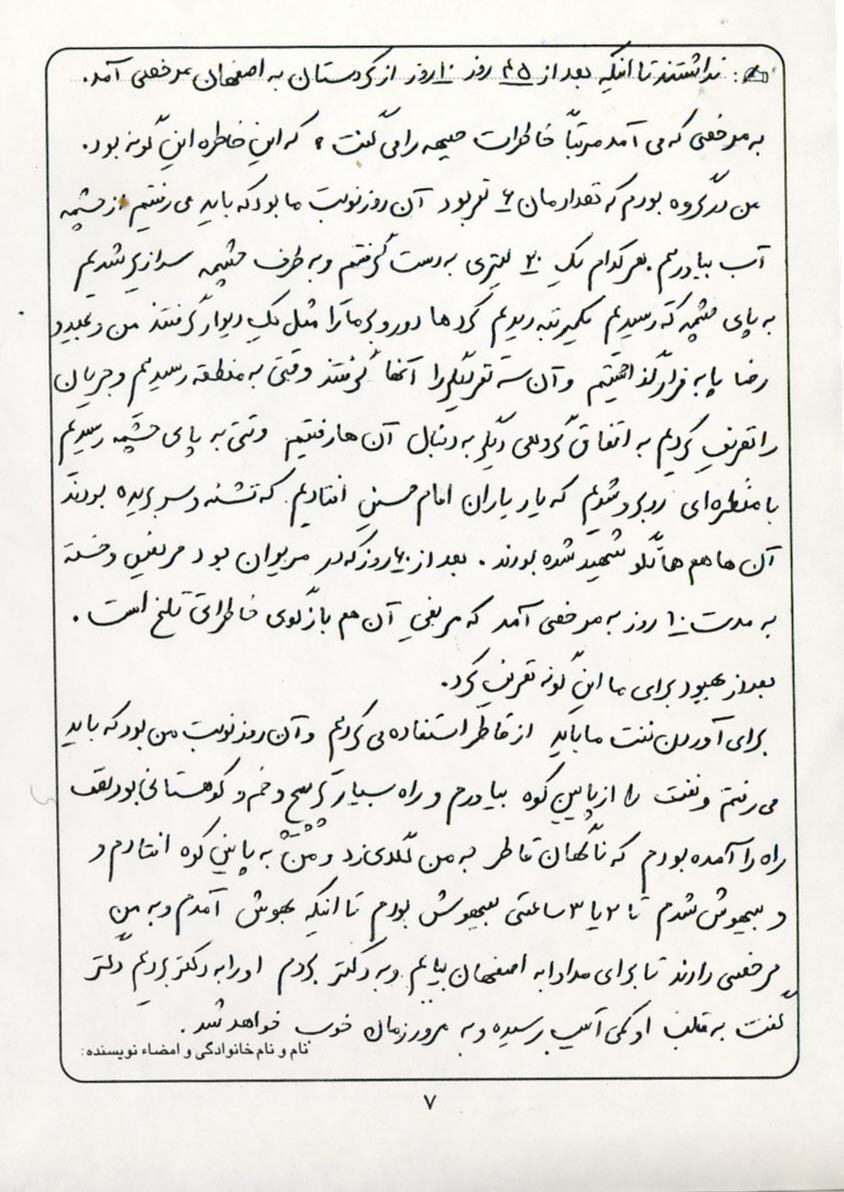 نداشتند تا اینکه بعد از ۴۵ روز ۱۰ روز از کردستان به اصفهان مرخصی آمد.
به مرخصی که می آمد مرتباً خاطرات جبهه را می گفت که این خاطره این گونه بود.
من در گروه بودم که تعدادمان ۶ نفر بود آن روز نوبت ما بود که باید می رفتیم از چشمه
آب بیاوریم. هر کدام یک ۲۰ لیتری به دست گرفتیم و به طرف چشمه سرازیر شدیم
به پای چشمه که رسیدیم یکمرتبه دیدیم کردها دور و بر ما را مثل یک دیوار گرفتند من و
رضا پا به فرار گذاشتیم و آن سه نفر دیگر را آنها گرفتند وقتی به منطقه رسیدیم و جریان
را تعریف کردیم به اتفاق گروهی دیگر به دنبال آن ها رفتیم وقتی به پای چشمه رسیدیم
با منظره ای روبرو شدیم که یاد یاران امام حسین افتادیم. که تشنه و سر بریده بودند
آن ها هم شهید شده بودند. بعد از ۶۰ روز که در مریوان بود مریض و خسته
به مدت ۱۰ روز به مرخصی آمد که مریضی آن هم بازگوی خاطرای تلخ است.
بعد از بهبود برای ما این گونه تعریف کرد.
برای آوردن نفت ما باید از قاطر استفاده می کردیم و آن روز نوبت من بود که باید
می رفتم و نفت را از پایین کوه بیاورم و راه بسیار پر پیچ و خم و کوهستانی بود نصف
راه را آمده بودم که ناگهان قاطر به من لگدی زد و من به پایین کوه افتادم و
و بیهوش شدم تا ۲ یا ۳ ساعتی بیهوش بودم تا اینکه بهوش آمدم و به من
مرخصی دادند تا برای مداوا به اصفهان بیایم و به دکتر بردم او را به دکتر بردیم دکتر
گفت به قلب او کمی آسیب رسیده و به مرور زمان خوب خواهد شد.
نام و نام خانوادگی و امضاء نویسنده:
۷